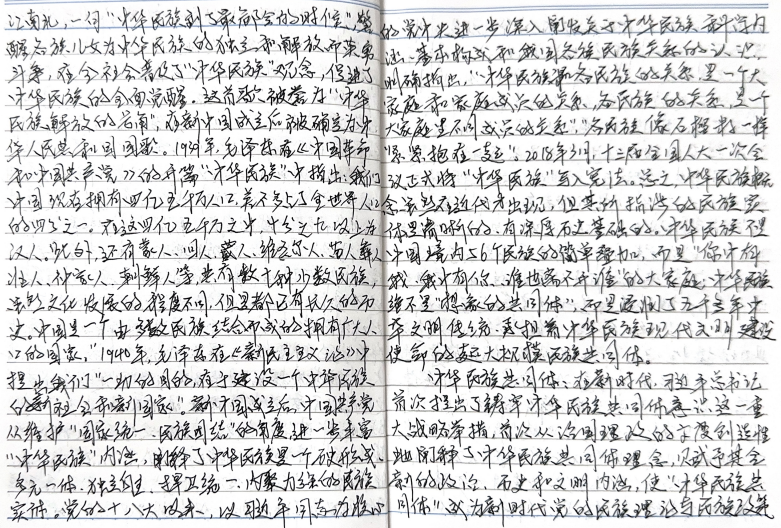 江南北，一句"中华民族到了最危险的时候"，唤
醒各族儿女为中华民族的独立和解放而英勇
斗争，在全社会普及了"中华民族"观念，促进了
中华民族的全面觉醒。这首歌被誉为"中华
民族解放的号角"，在新中国成立后被确定为中
华人民共和国国歌。1939年，毛泽东在《中国革命
和中国共产党》的开篇"中华民族"中指出：我们
中国现在拥有四亿五千万人口，差不多占了全世界人口
的四分之一。在这四亿五千万之中，十分之九以上为
汉人。此外，还有蒙人、回人、藏人、维吾尔人、苗人、彝人
壮人、仲家人、朝鲜人等，共有数十种少数民族，
虽然文化发展的程度不同，但是都已有长久的历
史。中国是一个由多数民族结合而成的拥有广大人
口的国家。"1940年，毛泽东在《新民主主义论》中
提出我们"一切的目的，在于建设一个中华民族
的新社会和新国家"。新中国成立后，中国共产党
从维护"国家统一、民族团结"的角度进一步丰富
"中华民族"内涵，阐释了中华民族是一个
多元一体、独立自主、捍卫统一、内聚力强的民族
实体。党的十八大以来，以习近平同志为核心
的党中央进一步深入阐发关于中华民族
涵、基本构成和我国各族民族关系的认识，
明确指出，"中华民族和各民族的关系，是一个大
家庭和家庭成员的关系，各民族的关系，是一个
大家庭里不同成员的关系"，"各民族像石榴籽一样
紧紧抱在一起"。2018年3月，十三届全国人大一次会
议正式将"中华民族"写入宪法。总之，中华民族概
念虽然在近代才出现，但其所指涉的民族实
体是清晰的，有深厚历史基础的。中华民族不是
中国境内56个民族的简单叠加，而是"你中有
我、我中有你、谁也离不开谁"的大家庭；中华民族
绝不是"想象的共同体"，而是浸润了五千多年中
华文明传统、承担着中华民族现代文明建设
使命的超大规模民族共同体。
中华民族共同体：在新时代，习近平总书记
首次提出了铸牢中华民族共同体意识这一重
大战略举措，首次从治国理政的高度创造性
地阐释了中华民族共同体理念，赋予其全
新的政治、历史和文明内涵，使"中华民族共
同体"成为新时代党的民族理论与民族政策